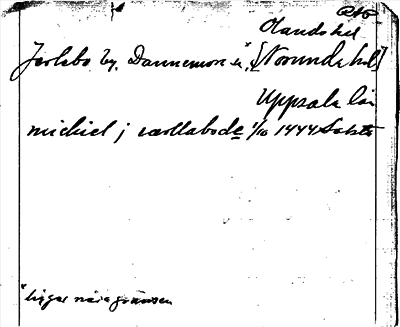 Olands hd
Jerlebo by, Dannemora sn, [Norunda hd]
Uppsala län
michiel j værllabode 1/10 1444
ligger nära gränsen